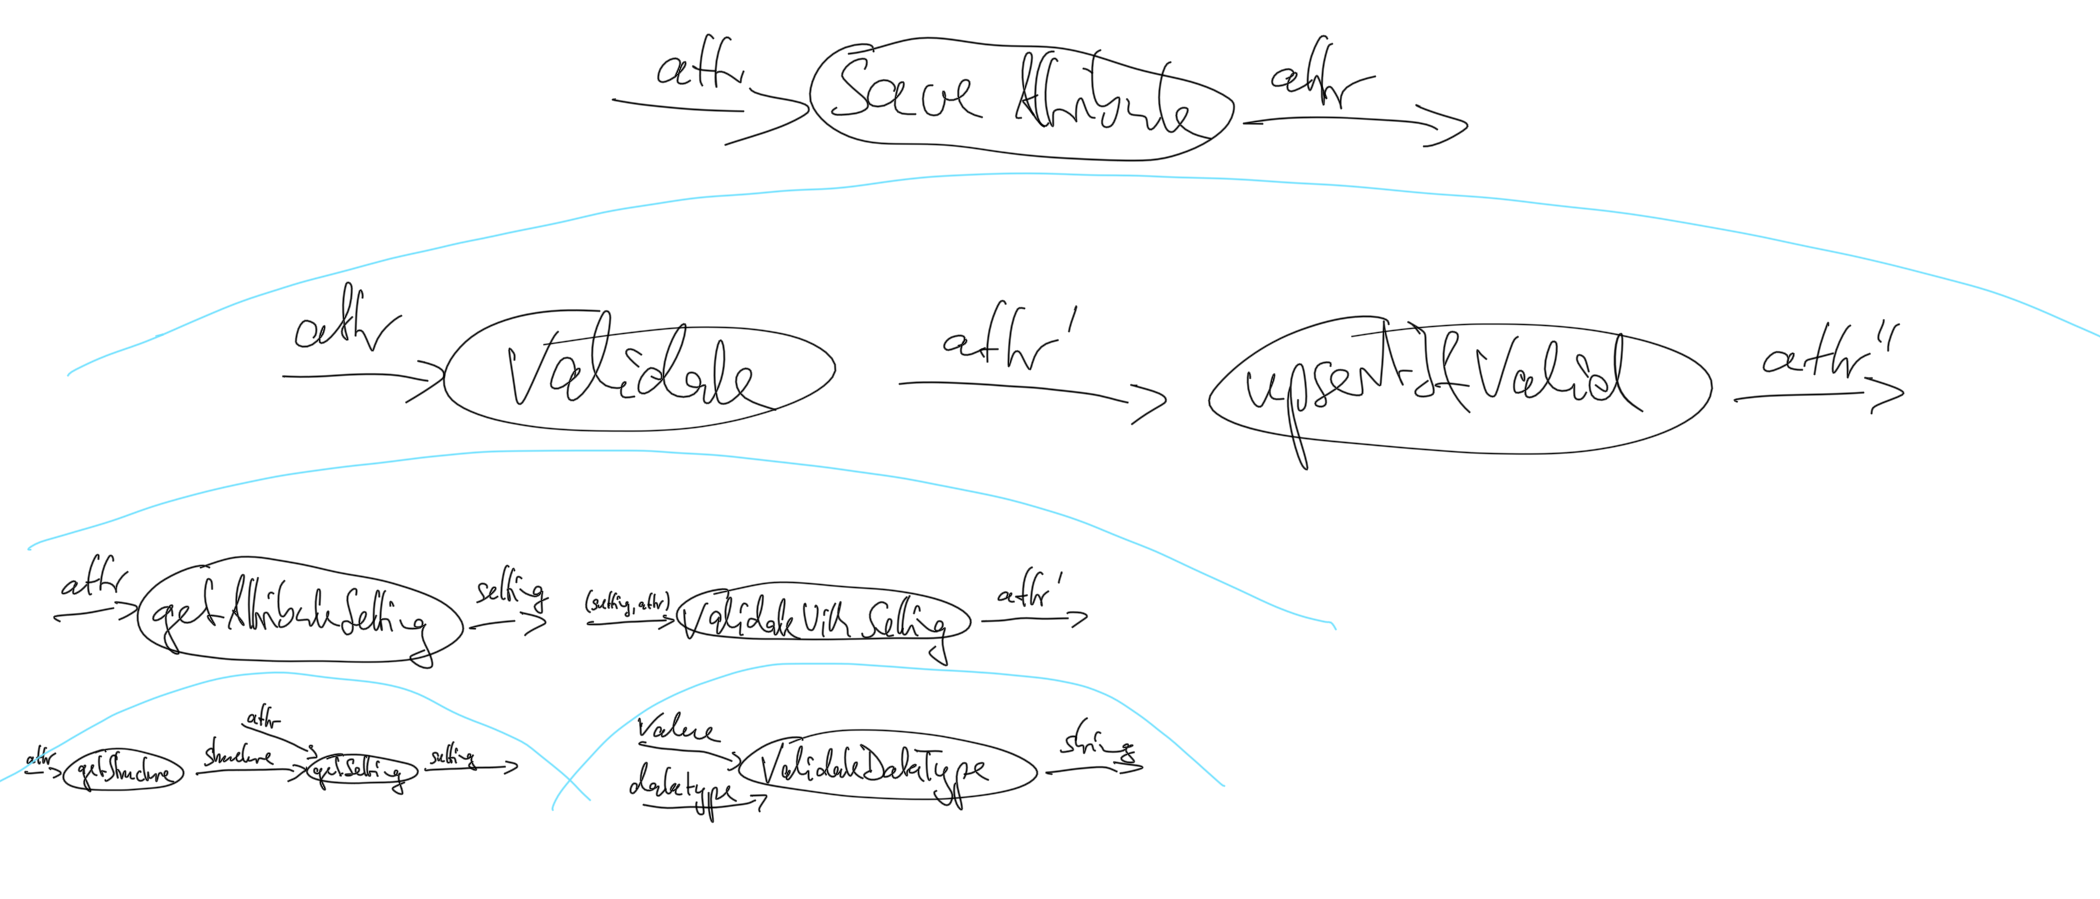 attr Save Attribute attr
attr Validate attr' upsertIfValid attr''
attr getAttributeSetting setting (setting, attr) ValidateWithSetting attr'
attr
attr getStructure structure getSetting setting
Value
datatype ValidateDataType string